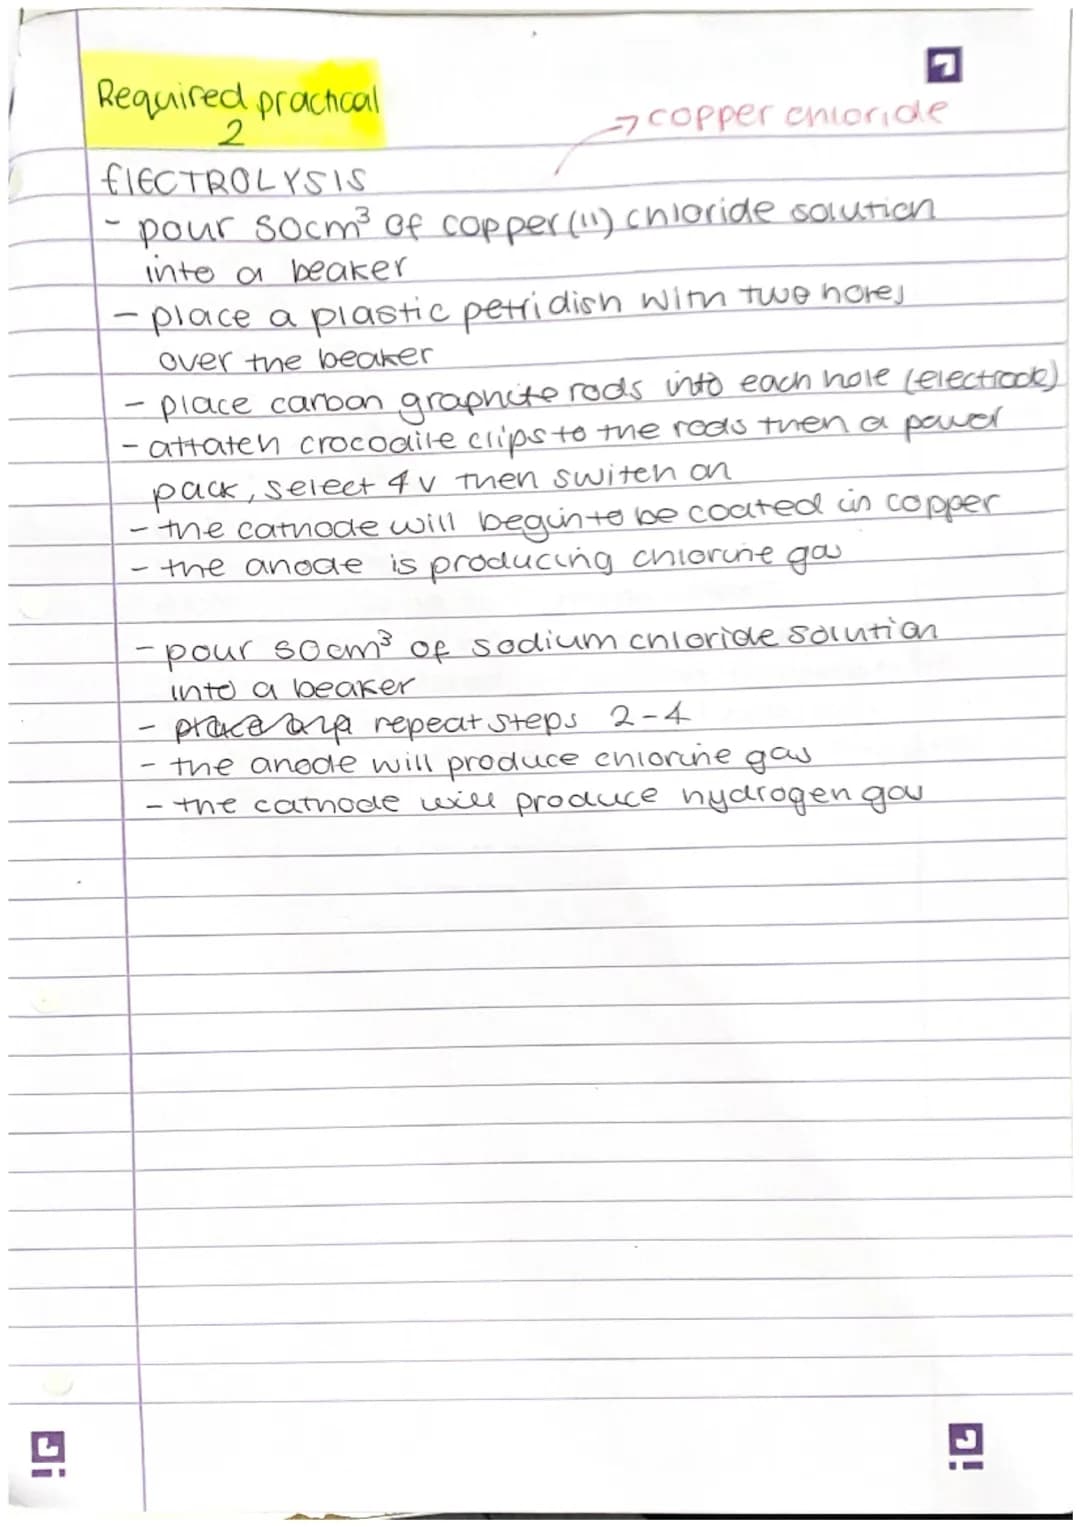 Required practical
2
→ copper chloride
ElECTROLYSIS
- pour 50cm³ of copper(11) chloride solution
into a beaker
- place a plastic petri dish with two holes
over the beaker
- place carbon graphite rods into each hole (electrode)
- attatch crocodile clips to the rods then a power
pack, select 4v then switch on
- the cathode will begin to be coated in copper
- the anode is producing chlorine gas
- pour 50cm³ of sodium chloride solution
into a beaker
- repeat steps 2-4
- the anode will produce chlorine gas
- the cathode will produce hydrogen gas